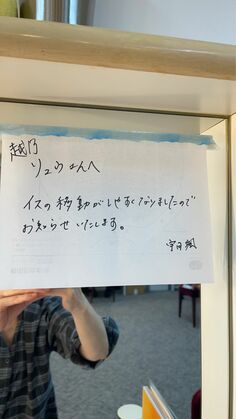 越乃
リュウさんへ
イスの移動がしやすくなりましたので
お知らせいたします。